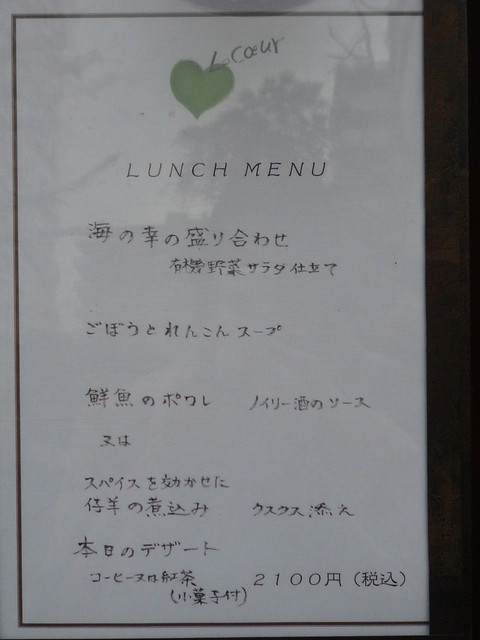 Le Cœur
LUNCH MENU
海の幸の盛り合わせ
有機野菜サラダ仕立て
ごぼうとれんこんスープ
鮮魚のポワレ ノイリー酒のソース
又は
スパイスを効かせた
仔羊の煮込み クスクス添え
本日のデザート
コーヒー又は紅茶 2100円（税込）
(小菓子付)